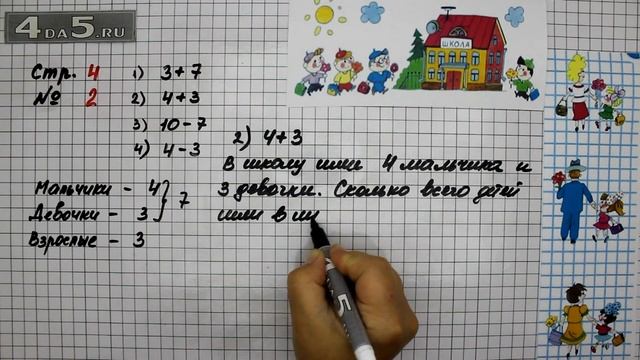 4DA5.RU
ШКОЛА
Стр. 4
№ 2
1) 3+7
2) 4+3
3) 10-7
4) 4-3
Мальчики - 4
Девочки - 3
} 7
Взрослые - 3
2) 4+3
В школу шли 4 мальчика и
3 девочки. Сколько всего детей
шли в шк
5